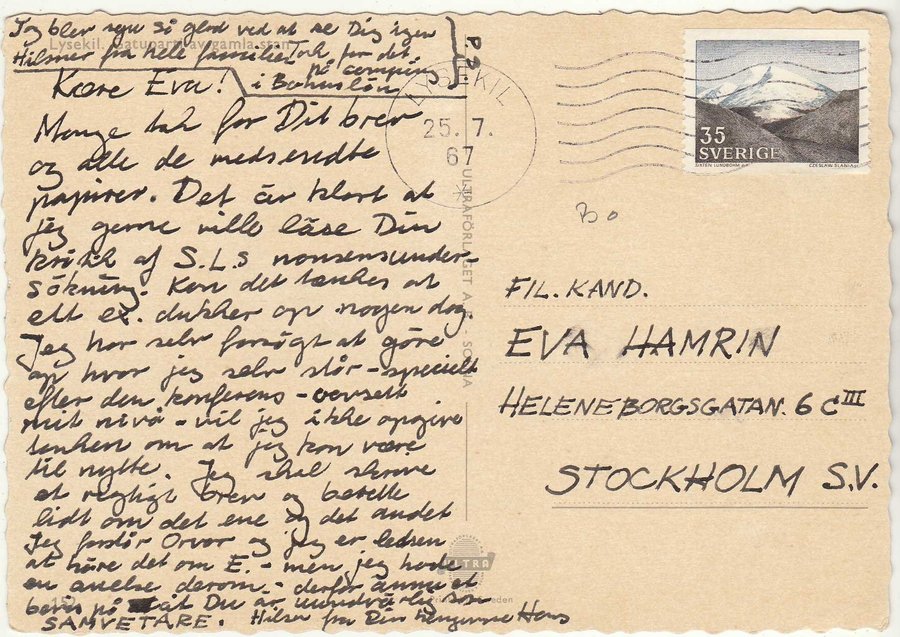 Jeg blev så glad ved at se Dig igen
Hilsner fra hele familien Tak for det
på camping
i Bohuslän
P.S.
Lysekil. gamla stan
Kære Eva!
Mange tak for Dit brev
og alle de medsendte
papirer. Det är klart at
jeg gerne ville läse Din
kritik af S.L.s nonsensunder-
sökning. Kan det tænkes at
ett ex. dukker op nogen dag.
Jeg har selv forsögt at göre
op hvor jeg selv står - specielt
efter den konferens - oavsett
mit nivå - vil jeg ikke opgive
tanken om at jeg kan være
til nytte. Jeg skal skrive
et rigtigt brev og berette
lidt om det ene og det andet
Jeg forstår Orvar og jeg er ledsen
at höre det om E. - men jeg havde
en anelse derom. - derfor ännu et
bevis på at Du är uundværlig som
SAMVETARE. Hilsen fra Din Hans
LYSEKIL
25. 7.
67
ULTRAFÖRLAGET A.B. - SOLNA
ULTRA
35
SVERIGE
SIXTEN LUNDBOHM CZESLAW SLANIA
Bo
FIL. KAND.
EVA HAMRIN
HELENEBORGSGATAN. 6 C III
STOCKHOLM S.V.